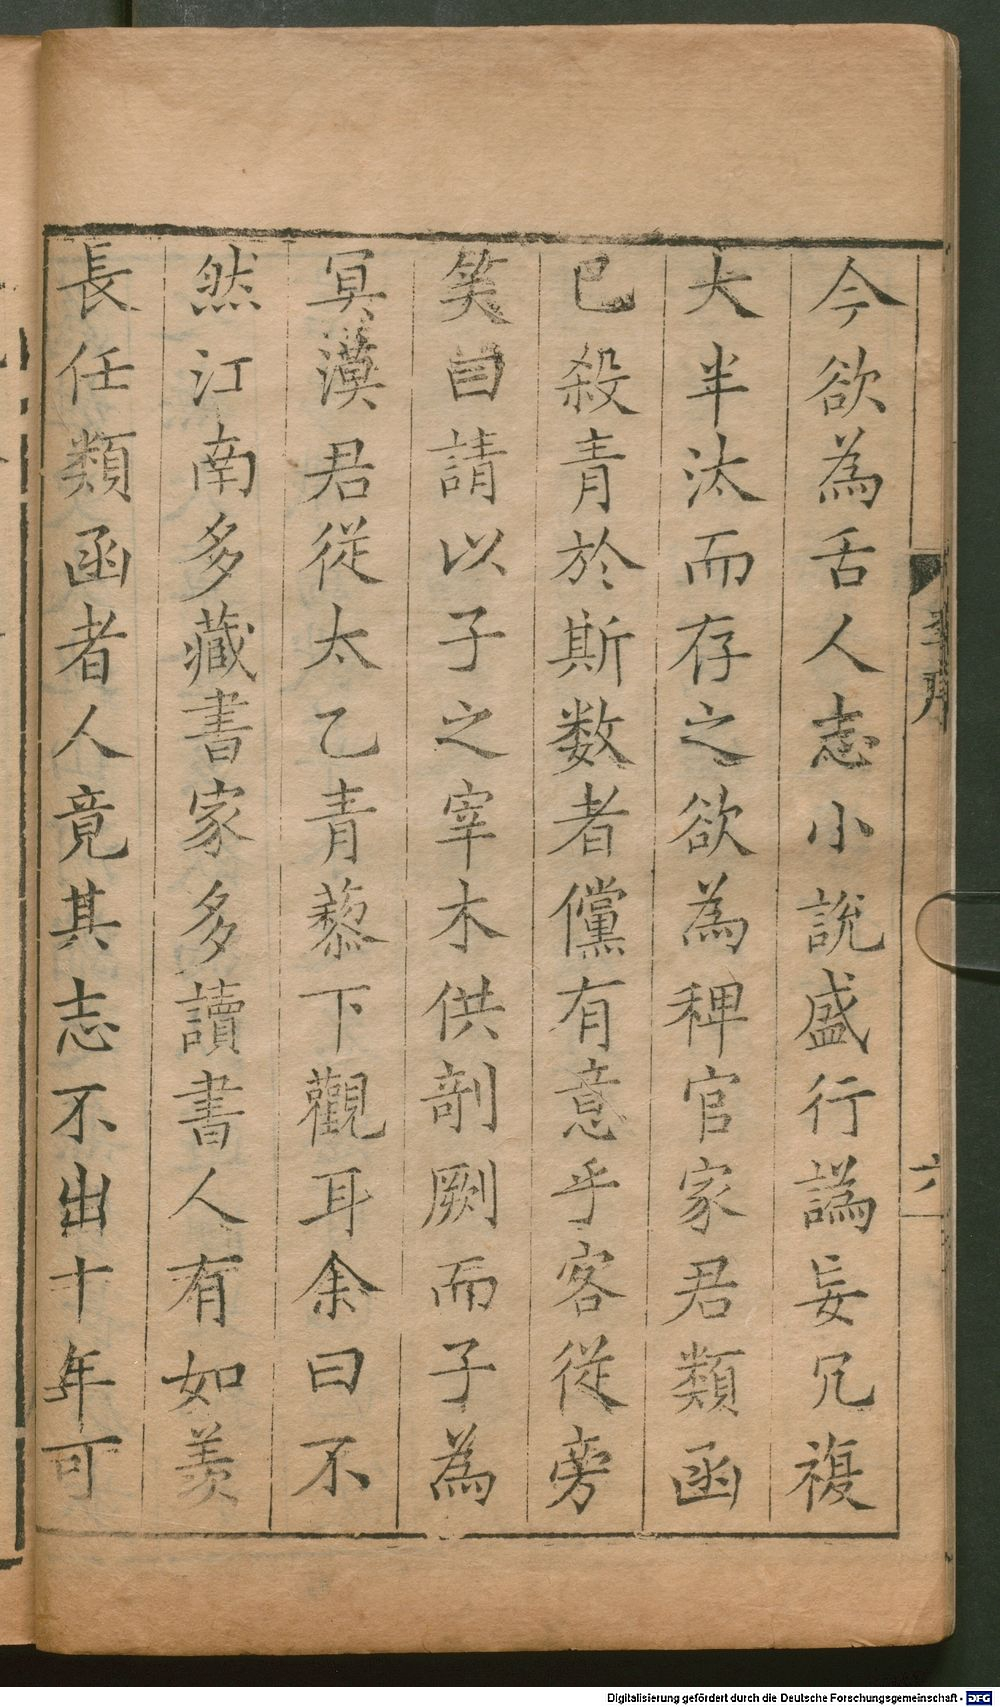 今欲為舌人志小說盛行譌妄冗複
大半汰而存之欲為稗官家君類函
已殺青於斯数者儻有意乎客從旁
笑曰請以子之宰木供剞劂而子為
冥漠君從太乙青藜下觀耳余曰不
然江南多藏書家多讀書人有如羨
長任類函者人竟其志不出十年可
序
六
Digitalisierung gefördert durch die Deutsche Forschungsgemeinschaft - DFG